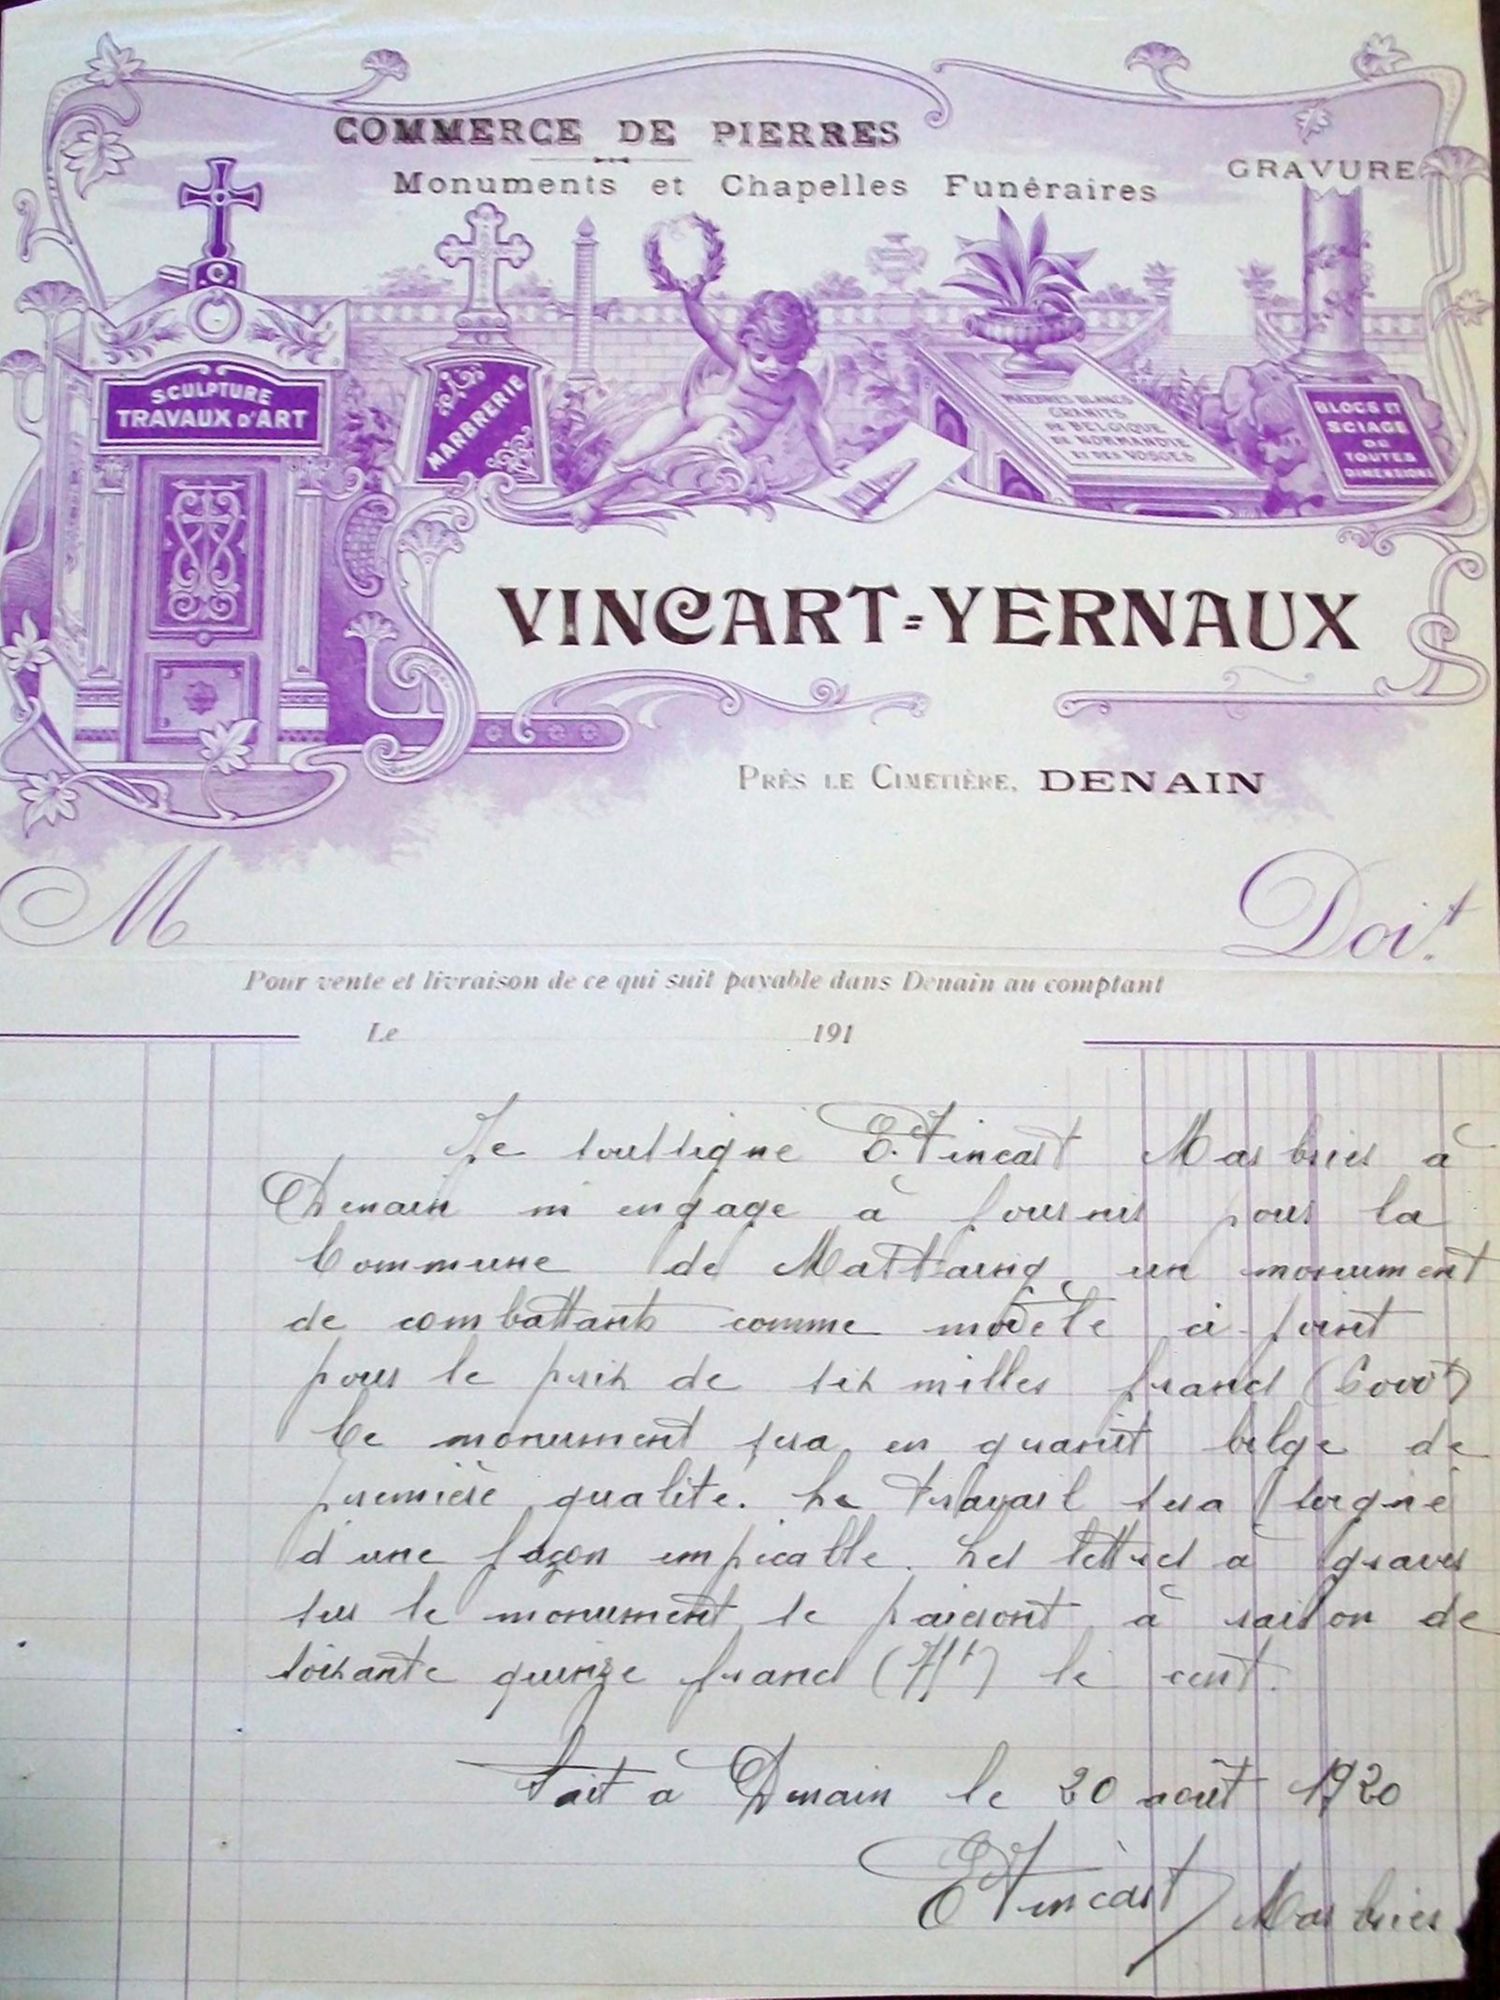 COMMERCE DE PIERRES
Monuments et Chapelles Funéraires
GRAVURE
SCULPTURE
TRAVAUX D'ART
MARBRERIE
MARBRES BLANCS
GRANITS
DE BELGIQUE
DE NORMANDIE
ET DES VOSGES
BLOCS ET
SCIAGE
DE
TOUTES
DIMENSIONS
VINCART=YERNAUX
PRÈS LE CIMETIÈRE, DENAIN
M Doit
Pour vente et livraison de ce qui suit payable dans Denain au comptant
Le 191
Je soussigné E. Vincart Marbrier à
Denain m'engage à fournir pour la
Commune de Mastaing, un monument
de combattants comme modèle ci-joint
pour le prix de six milles francs (6000f)
Ce monument sera en granit belge de
première qualité. Le travail sera soigné
d'une façon impécable. Les lettres à graver
sur le monument se paieront à raison de
soixante quinze francs (75f) le cent.
Fait à Denain le 20 août 1920
E Vincart Marbrier